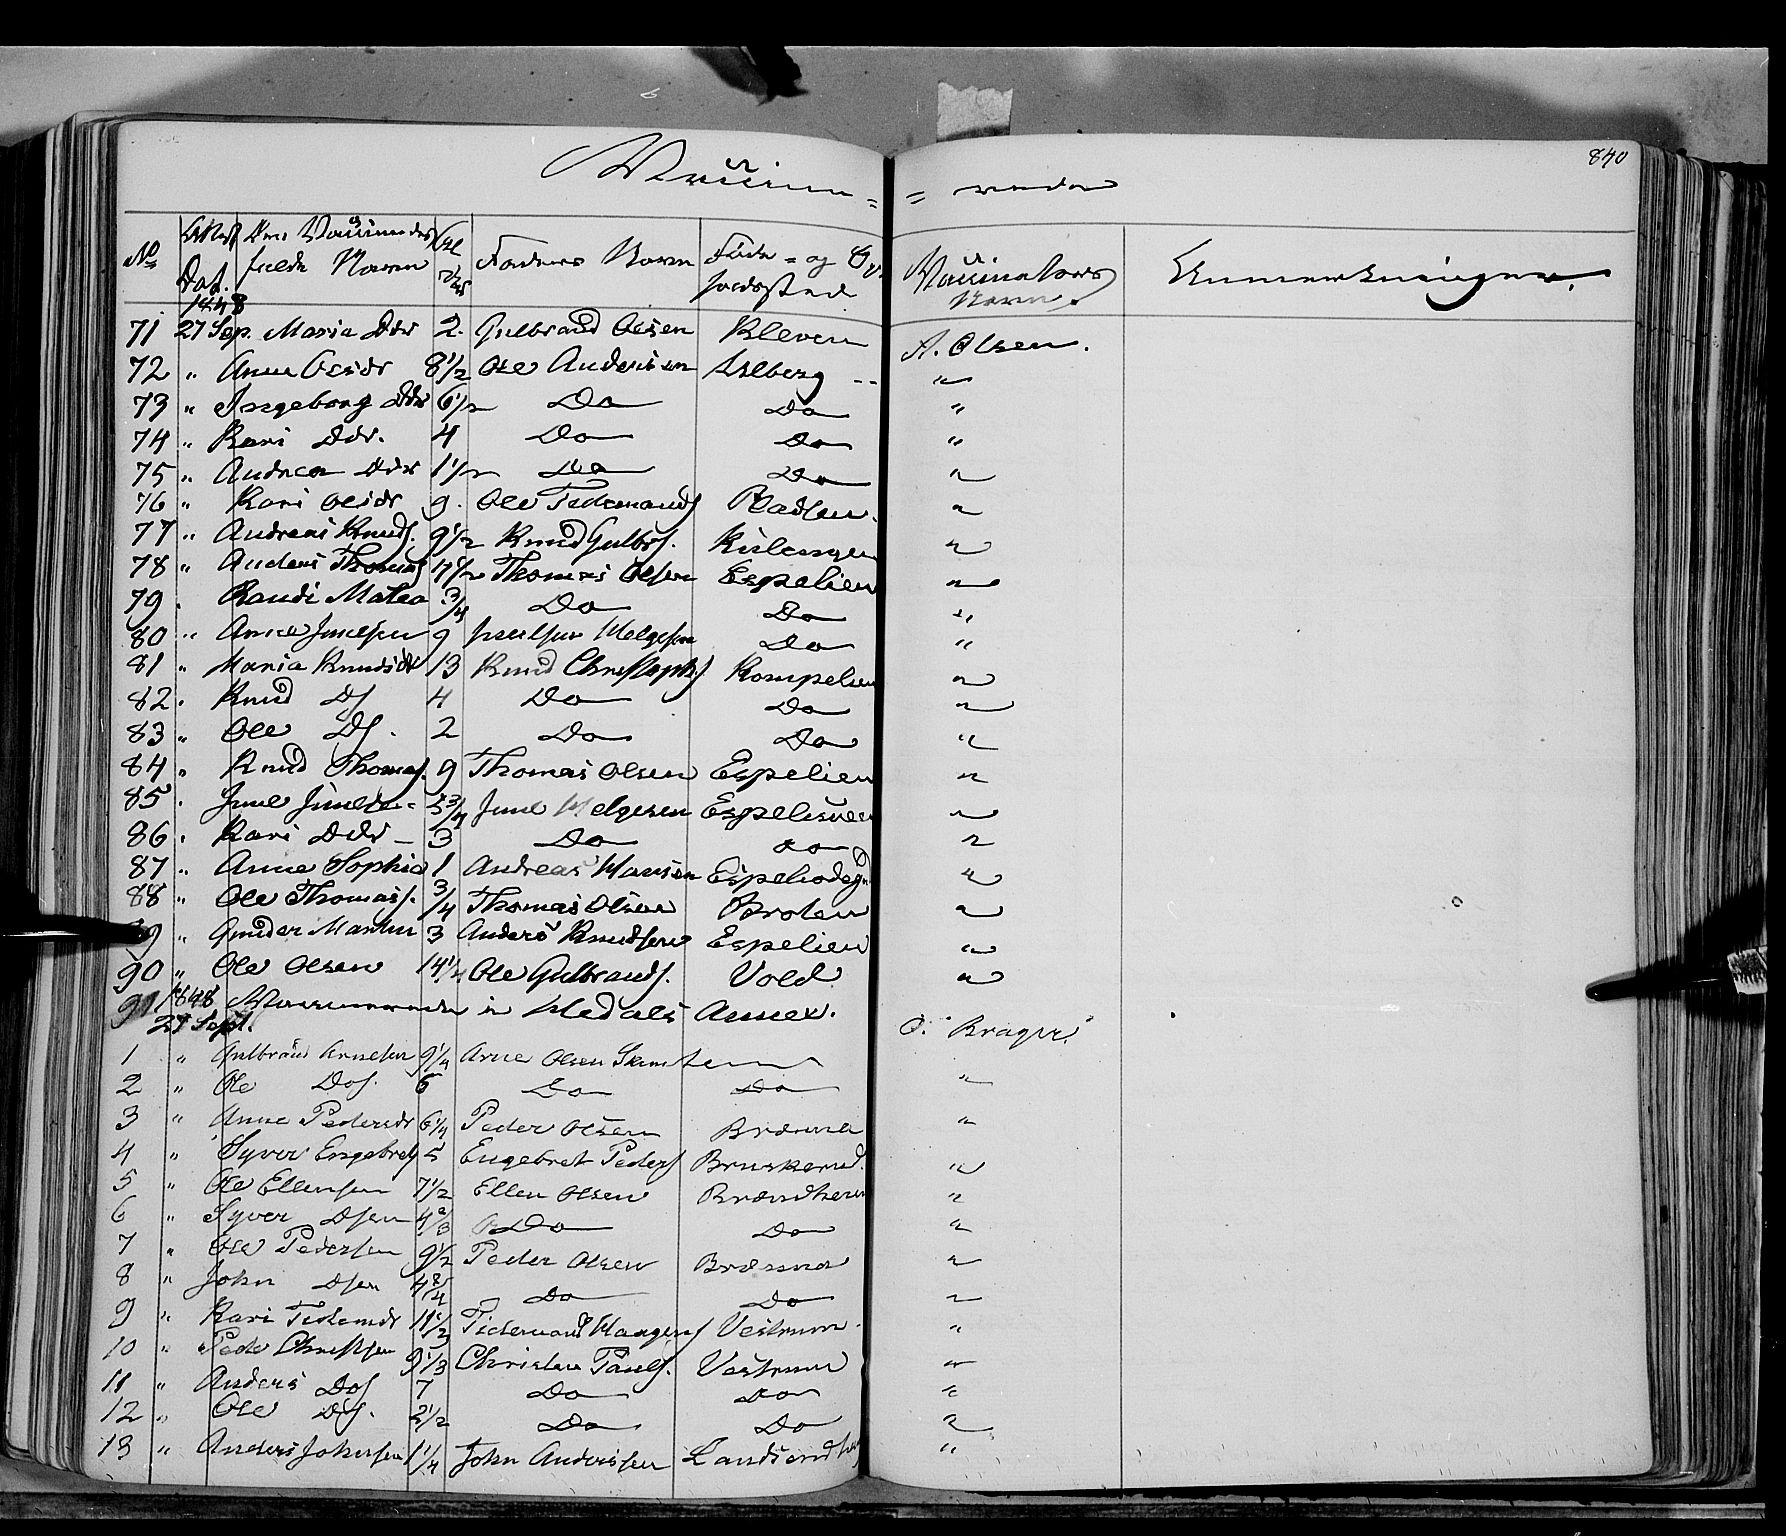 840
Vaccine = = rende
No Attest Dat. Den Vaccineredes fulde Navn Faders Navn Føde = og Op- holdssted Vaccinateurs Navn Anmærkninger.
1848
71 27 Sep. Maria Ddr 2. Gulbrand Olsen Kleven A. Olsen.
72 " Anne Olsdr 8 1/2 Ole Anderssen Aslberg "
73 " Ingeborg Ddr 6 1/2 Do Do "
74 " Kari Ddr. 4 Do Do "
75 " Andrea Ddr 1 1/2 Do Do "
76 " Kari Olsdr 9. Ole Tidemands "
77 " Andreas Knuds. 9 1/2 Knud Gulbrs. "
78 " Anders Thomas Thomas Olsen Espelien "
79 " Randi Matea 3/4 Do Do "
80 " Arne Juulsen 9 Juulsen Helgesen Do "
81 " Maria Knudsdr 13 Knud Christophs Rompelien "
82. " Knud Ds 4 Do Do "
83 " Ole Ds. 2 Do Do "
84 " Knud Thomas. 9 Thomas Olsen Espelien "
85. " Juul Juul Helgesen "
86 " Kari Ddr 3 Do Do "
87 " Anne Sophia 1 Andreas Hansen "
88 " Ole Thomass. 3/4 Thomas Olsen Broten "
89 " Martin 3 Anders Knudsen Espelien "
90 " Ole Olsen 14 1/2 Ole Gulbrands. Vold "
91. 1848 Vaccinerede in Hedals Annex.
27 Sept. O. Brager.
1 " Gulbrand Arnesen 9 1/4 Arne Olsen
2 " Ole Dos. 6 Do Do "
3 " Anne Pedersdr 6 1/4 Peder Olsen "
4 " Syver Engebrets 5 Engebret Peders Bruskerud. "
5 " Ole Ellensen 7 1/2 Ellen Olsen "
6 " Syver Dsen Do Do "
7 " Ole Pedersen 9 1/2 Peder Olsen "
8 " John Dsen Do Do "
9 " Kari Tidemdr 11 1/2 Tidemand Haagens Vestrum. "
10 " Peder Christsen 9 1/3 Christen Pauls. Vestrum "
11 " Anders Dos 7 Do Do "
12 " Ole Ds. 2 1/2 Do Do "
13 " Anders Johnsen 1 1/4 John Anderssen "